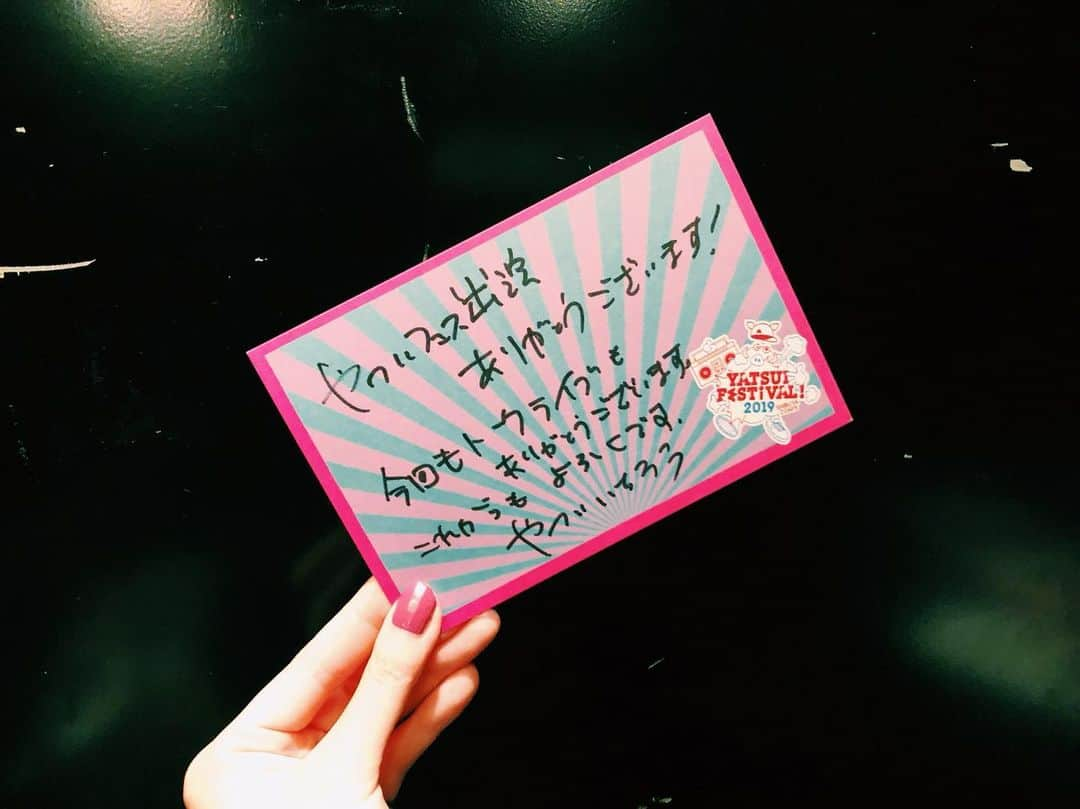 やついフェス出演
ありがとうございます!
今回もトークライブも
ありがとうございます
これからもよろしくです.
やついいちろう
YATSUI
FESTIVAL!
2019